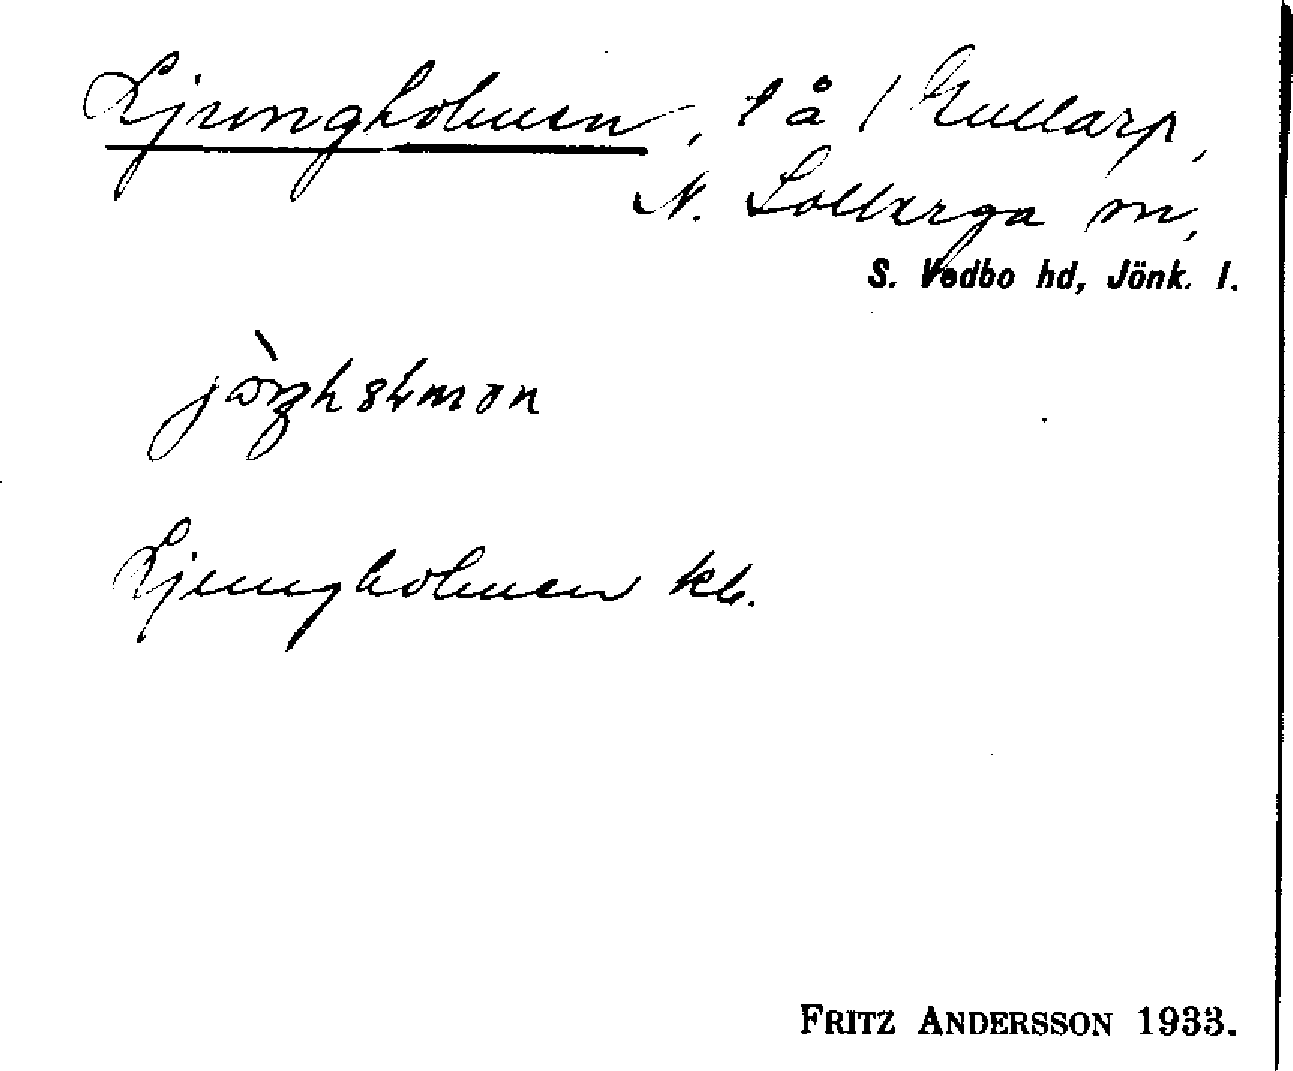 Ljungholmen, t å / Gullarp,
N. Solberga sn,
S. Vedbo hd, Jönk. l.
Ljungholmen kb.
FRITZ ANDERSSON 1933.